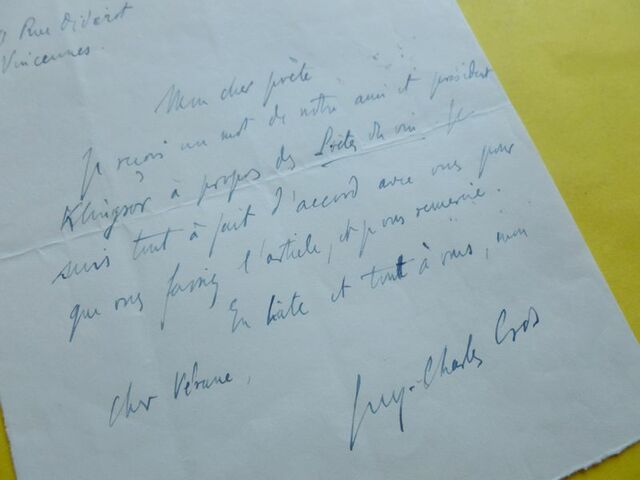 Rue Diderot
Vincennes.
Mon cher poète
Je reçois un mot de notre ami et président
Klingsor à propos des Poètes du vin. Je
suis tout à fait d'accord avec vous pour
que vous fassiez l'article, et je vous remercie.
En hâte et tout à vous, mon
cher Vérane,
Guy-Charles Cros